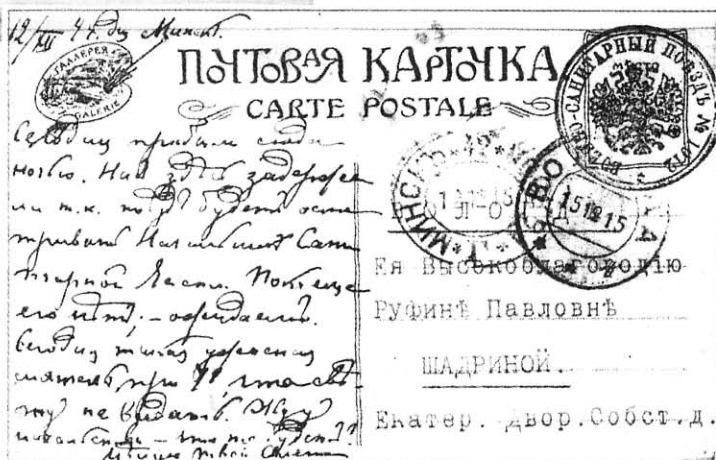 12/XII 4 ч. дня Минск.
ГАЛЛЕРЕЯ
GALERIE
ПОЧТОВАЯ КАРТОЧКА
CARTE POSTALE
ВОЕННО-САНИТАРНЫЙ ПОѢЗДЪ № 1
МѢСТО
Сегодня прибыли сюда
ночью. Нас здѣсь задержа
ли т.к. поѣздъ будетъ осма
тривать Начальникъ Сани
тарной Части. Пока еще
его нѣтъ, – ожидаемъ.
Сегодня такая ужасная
мятель, при 7°, что свѣ
ту не видать.
что то будетъ?
твой
МИНСКЪ
15 12 15
Ея Высокоблагородію
Руфинѣ Павловнѣ
ШАДРИНОЙ.
Екатер. Двор.Собст.д.